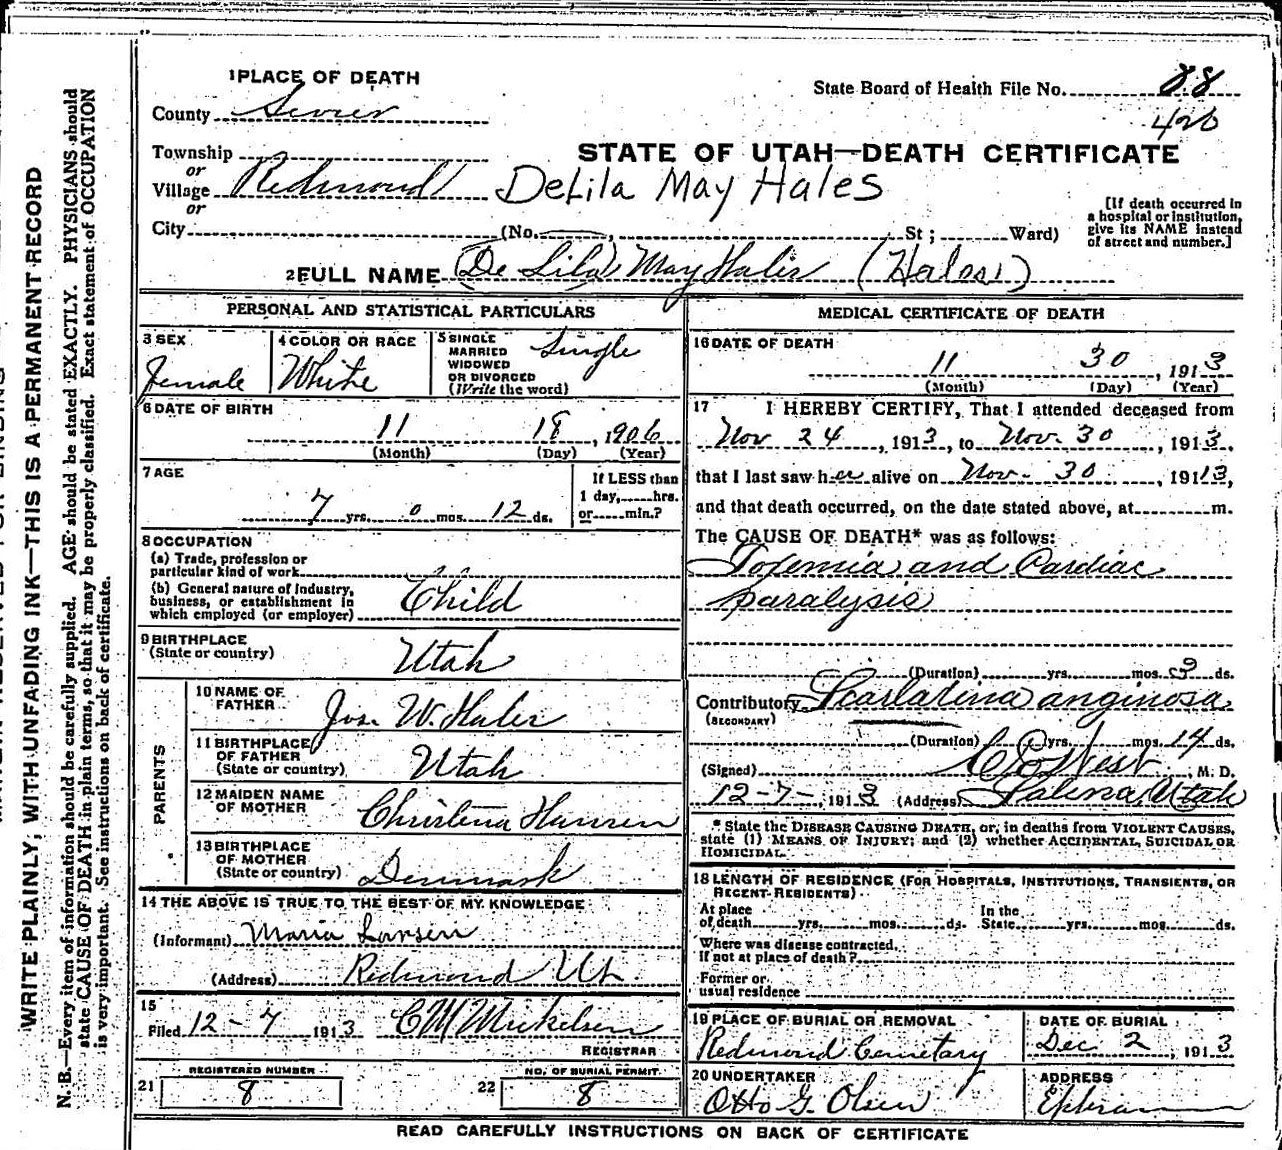 1 PLACE OF DEATH
State Board of Health File No. 88
County Sevier
426
Township
or
STATE OF UTAH—DEATH CERTIFICATE
Village Redmond
DeLila May Hales
or
City (No. , St; Ward)
[If death occurred in
a hospital or institution,
give its NAME instead
of street and number.]
2 FULL NAME (De Lila) May Hales (Hales)
PERSONAL AND STATISTICAL PARTICULARS
3 SEX
Female
4 COLOR OR RACE
White
5 SINGLE
MARRIED
WIDOWED
OR DIVORCED
(Write the word)
Single
6 DATE OF BIRTH
11 18, 1906
(Month) (Day) (Year)
7 AGE
7 yrs. 0 mos. 12 ds.
If LESS than
1 day, hrs.
or min.?
8 OCCUPATION
(a) Trade, profession or
particular kind of work
(b) General nature of industry,
business, or establishment in
which employed (or employer)
Child
9 BIRTHPLACE
(State or country)
Utah
PARENTS
10 NAME OF
FATHER
Jos. W. Hales
11 BIRTHPLACE
OF FATHER
(State or country)
Utah
12 MAIDEN NAME
OF MOTHER
Christena Hansen
13 BIRTHPLACE
OF MOTHER
(State or country)
Denmark
14 THE ABOVE IS TRUE TO THE BEST OF MY KNOWLEDGE
(Informant) Maria Larsen
(Address) Redmond Ut.
15
Filed 12-7 1913 C M Mickelsen
REGISTRAR
21 REGISTERED NUMBER
8
22 NO. OF BURIAL PERMIT
8
MEDICAL CERTIFICATE OF DEATH
16 DATE OF DEATH
11 30, 1913
(Month) (Day) (Year)
17 I HEREBY CERTIFY, That I attended deceased from
Nov 24, 1913, to Nov. 30, 1913,
that I last saw her alive on Nov. 30, 19113,
and that death occurred, on the date stated above, at m.
The CAUSE OF DEATH* was as follows:
Toxemia and Cardiac
paralysis
(Duration) yrs. mos. 9 ds.
Contributory Scarlatina anginosa
(SECONDARY)
(Duration) yrs. mos. 14 ds.
(Signed) West, M. D.
12-7-, 1913 (Address) Salina, Utah
* State the DISEASE CAUSING DEATH, or, in deaths from VIOLENT CAUSES,
state (1) MEANS OF INJURY; and (2) whether ACCIDENTAL, SUICIDAL OR
HOMICIDAL.
18 LENGTH OF RESIDENCE (FOR HOSPITALS, INSTITUTIONS, TRANSIENTS, OR
RECENT RESIDENTS)
At place
of death yrs. mos. ds.
In the
State yrs. mos. ds.
Where was disease contracted,
if not at place of death?
Former or
usual residence
19 PLACE OF BURIAL OR REMOVAL
Redmond Cemetary
DATE OF BURIAL
Dec 2, 1913
20 UNDERTAKER
Otto G. Olsen
ADDRESS
Ephraim
READ CAREFULLY INSTRUCTIONS ON BACK OF CERTIFICATE
WRITE PLAINLY, WITH UNFADING INK—THIS IS A PERMANENT RECORD
N. B.—Every item of information should be carefully supplied. AGE should be stated EXACTLY. PHYSICIANS should
state CAUSE OF DEATH in plain terms, so that it may be properly classified. Exact statement of OCCUPATION
is very important. See instructions on back of certificate.